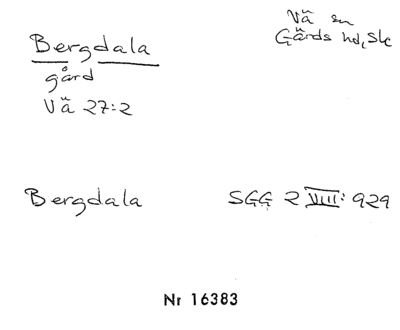 Bergdala
gård
Vä 27:2
Vä sn
Gärds hd, Sk
Bergdala
SGG 2 VIII: 929
Nr 16383